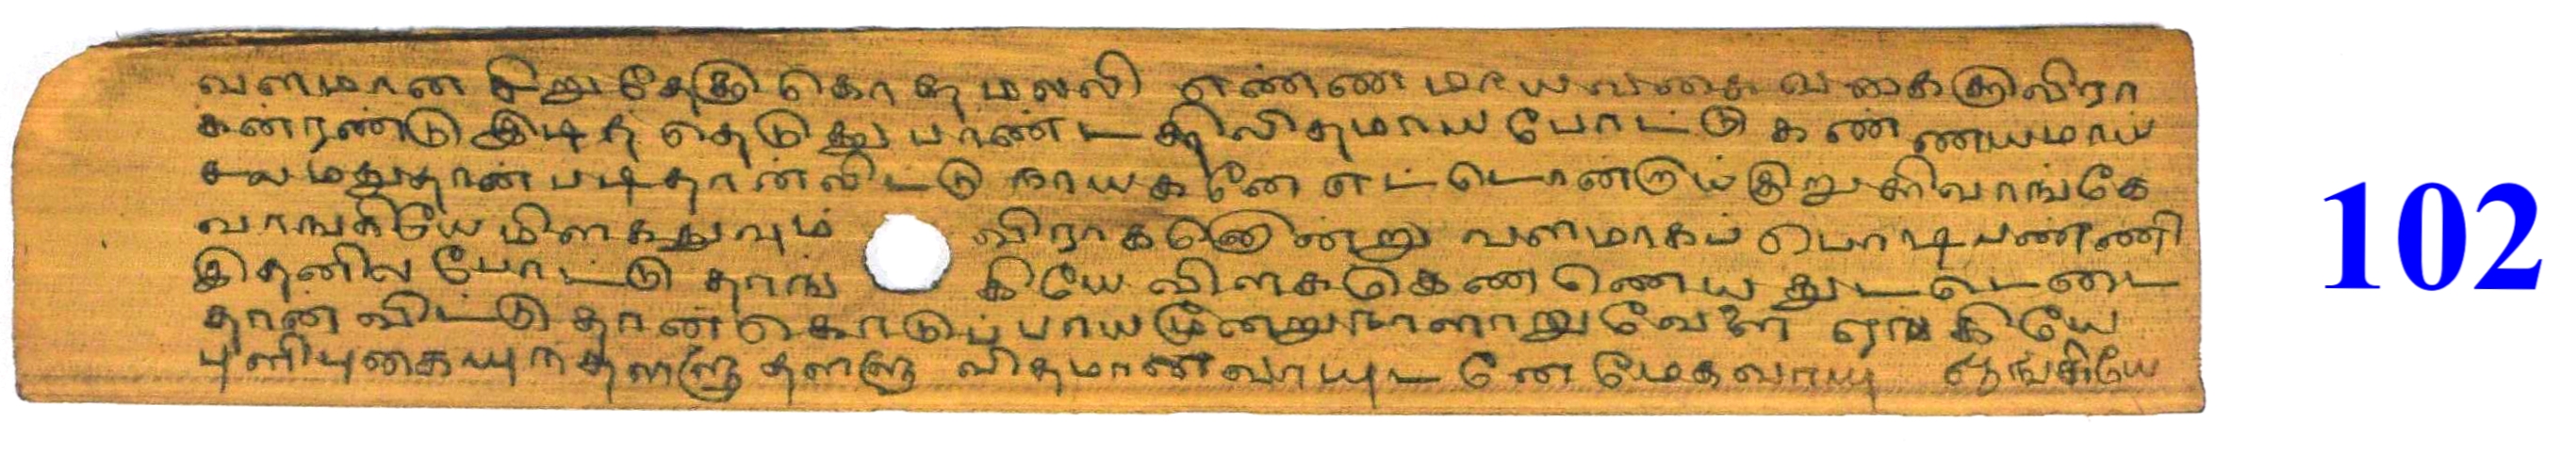 வளமான சிறுதேகு கொத்தமலலி எண்ணமாயவகை வகைகுவிரா
கன்ரண்டு இடித் தெடுத்து பாண்டத்தி லிதமாய போட்டு கண்ணயமாய்
சலமதுதான் படிதான்விட்டு நாயகனே எட்டொன்றாய் குறுக்கிவாங்கே
வாஙகியே மிளகதுவும் விராகனொன்று வளமாகப் பொடிபண்ணி
இதனில போட்டு தாங்கியே விளககெண ணெய துட டெடை
தான் விட்டு தான்கொடுப்பாய மூன்றுநாளாறுவேளை ஏங்கியே
புளிபுகையுந தளளு தளளு விதமான வாயுடனே மேகவாயு